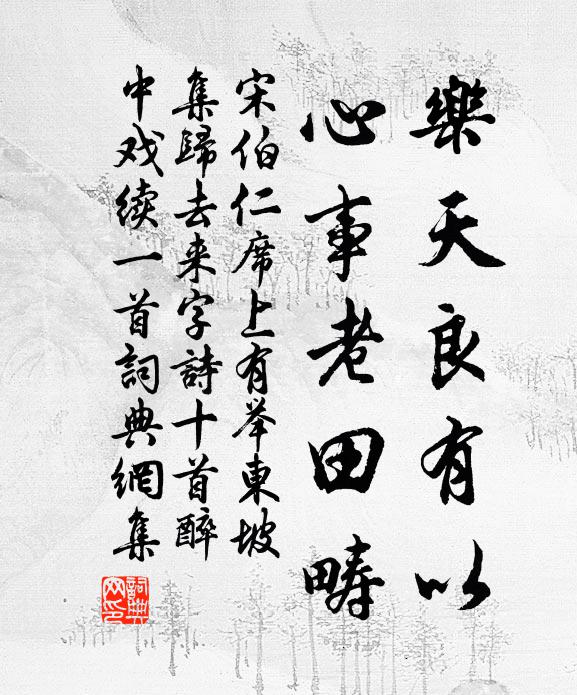 樂天良有以
心事老田疇
宋伯仁席上有举東坡
集歸去来字詩十首醉
中戏续一首詞典網集
詞典網印